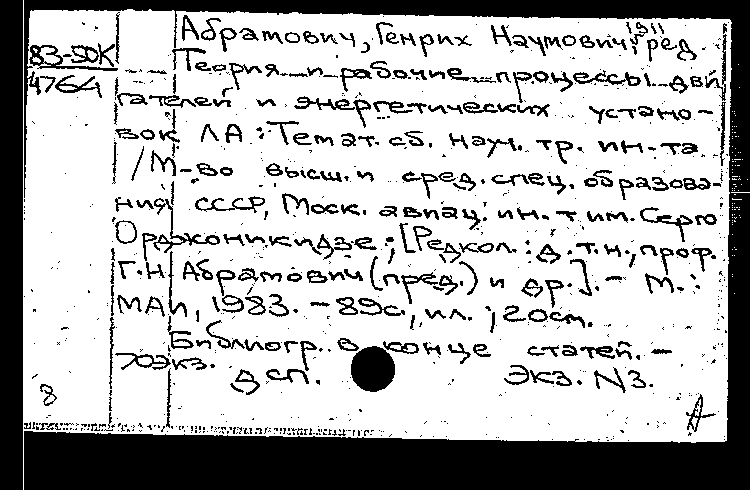 1911
Абрамович, Генрих Наумович, ред.
83-50К
4764
Теория и рабочие процессы дви
гателей и энергетических устано-
вок ЛА : Темат. сб. науч. тр. ин-та
/ М-во высш. и сред. спец. образова-
ния СССР, Моск. авиац. ин. т им. Серго
Орджоникидзе ; [Редкол. : д.т.н., проф.
Г.Н. Абрамович (пред.) и др.]. - М. :
МАИ, 1983. - 89с., ил. ; 20см.
Библиогр. в конце статей. -
70экз.
дсп. Экз. N3.
8
А